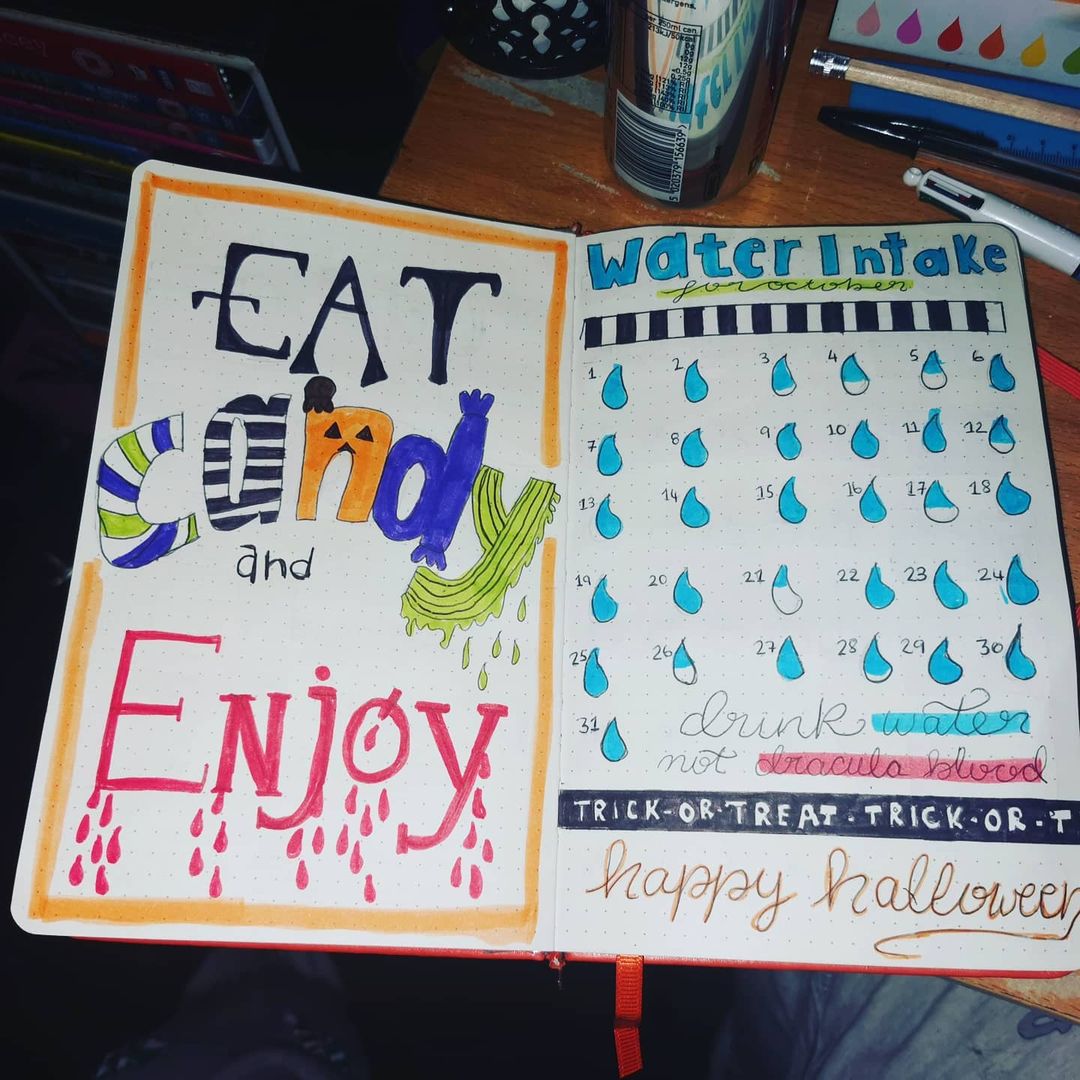 EAT
candy
and
Enjoy
Water Intake
for october
1 2 3 4 5 6
7 8 9 10 11 12
13 14 15 16 17 18
19 20 21 22 23 24
25 26 27 28 29 30
31
drink water
not dracula blood
TRICK-OR-TREAT-TRICK-OR-T
happy halloween